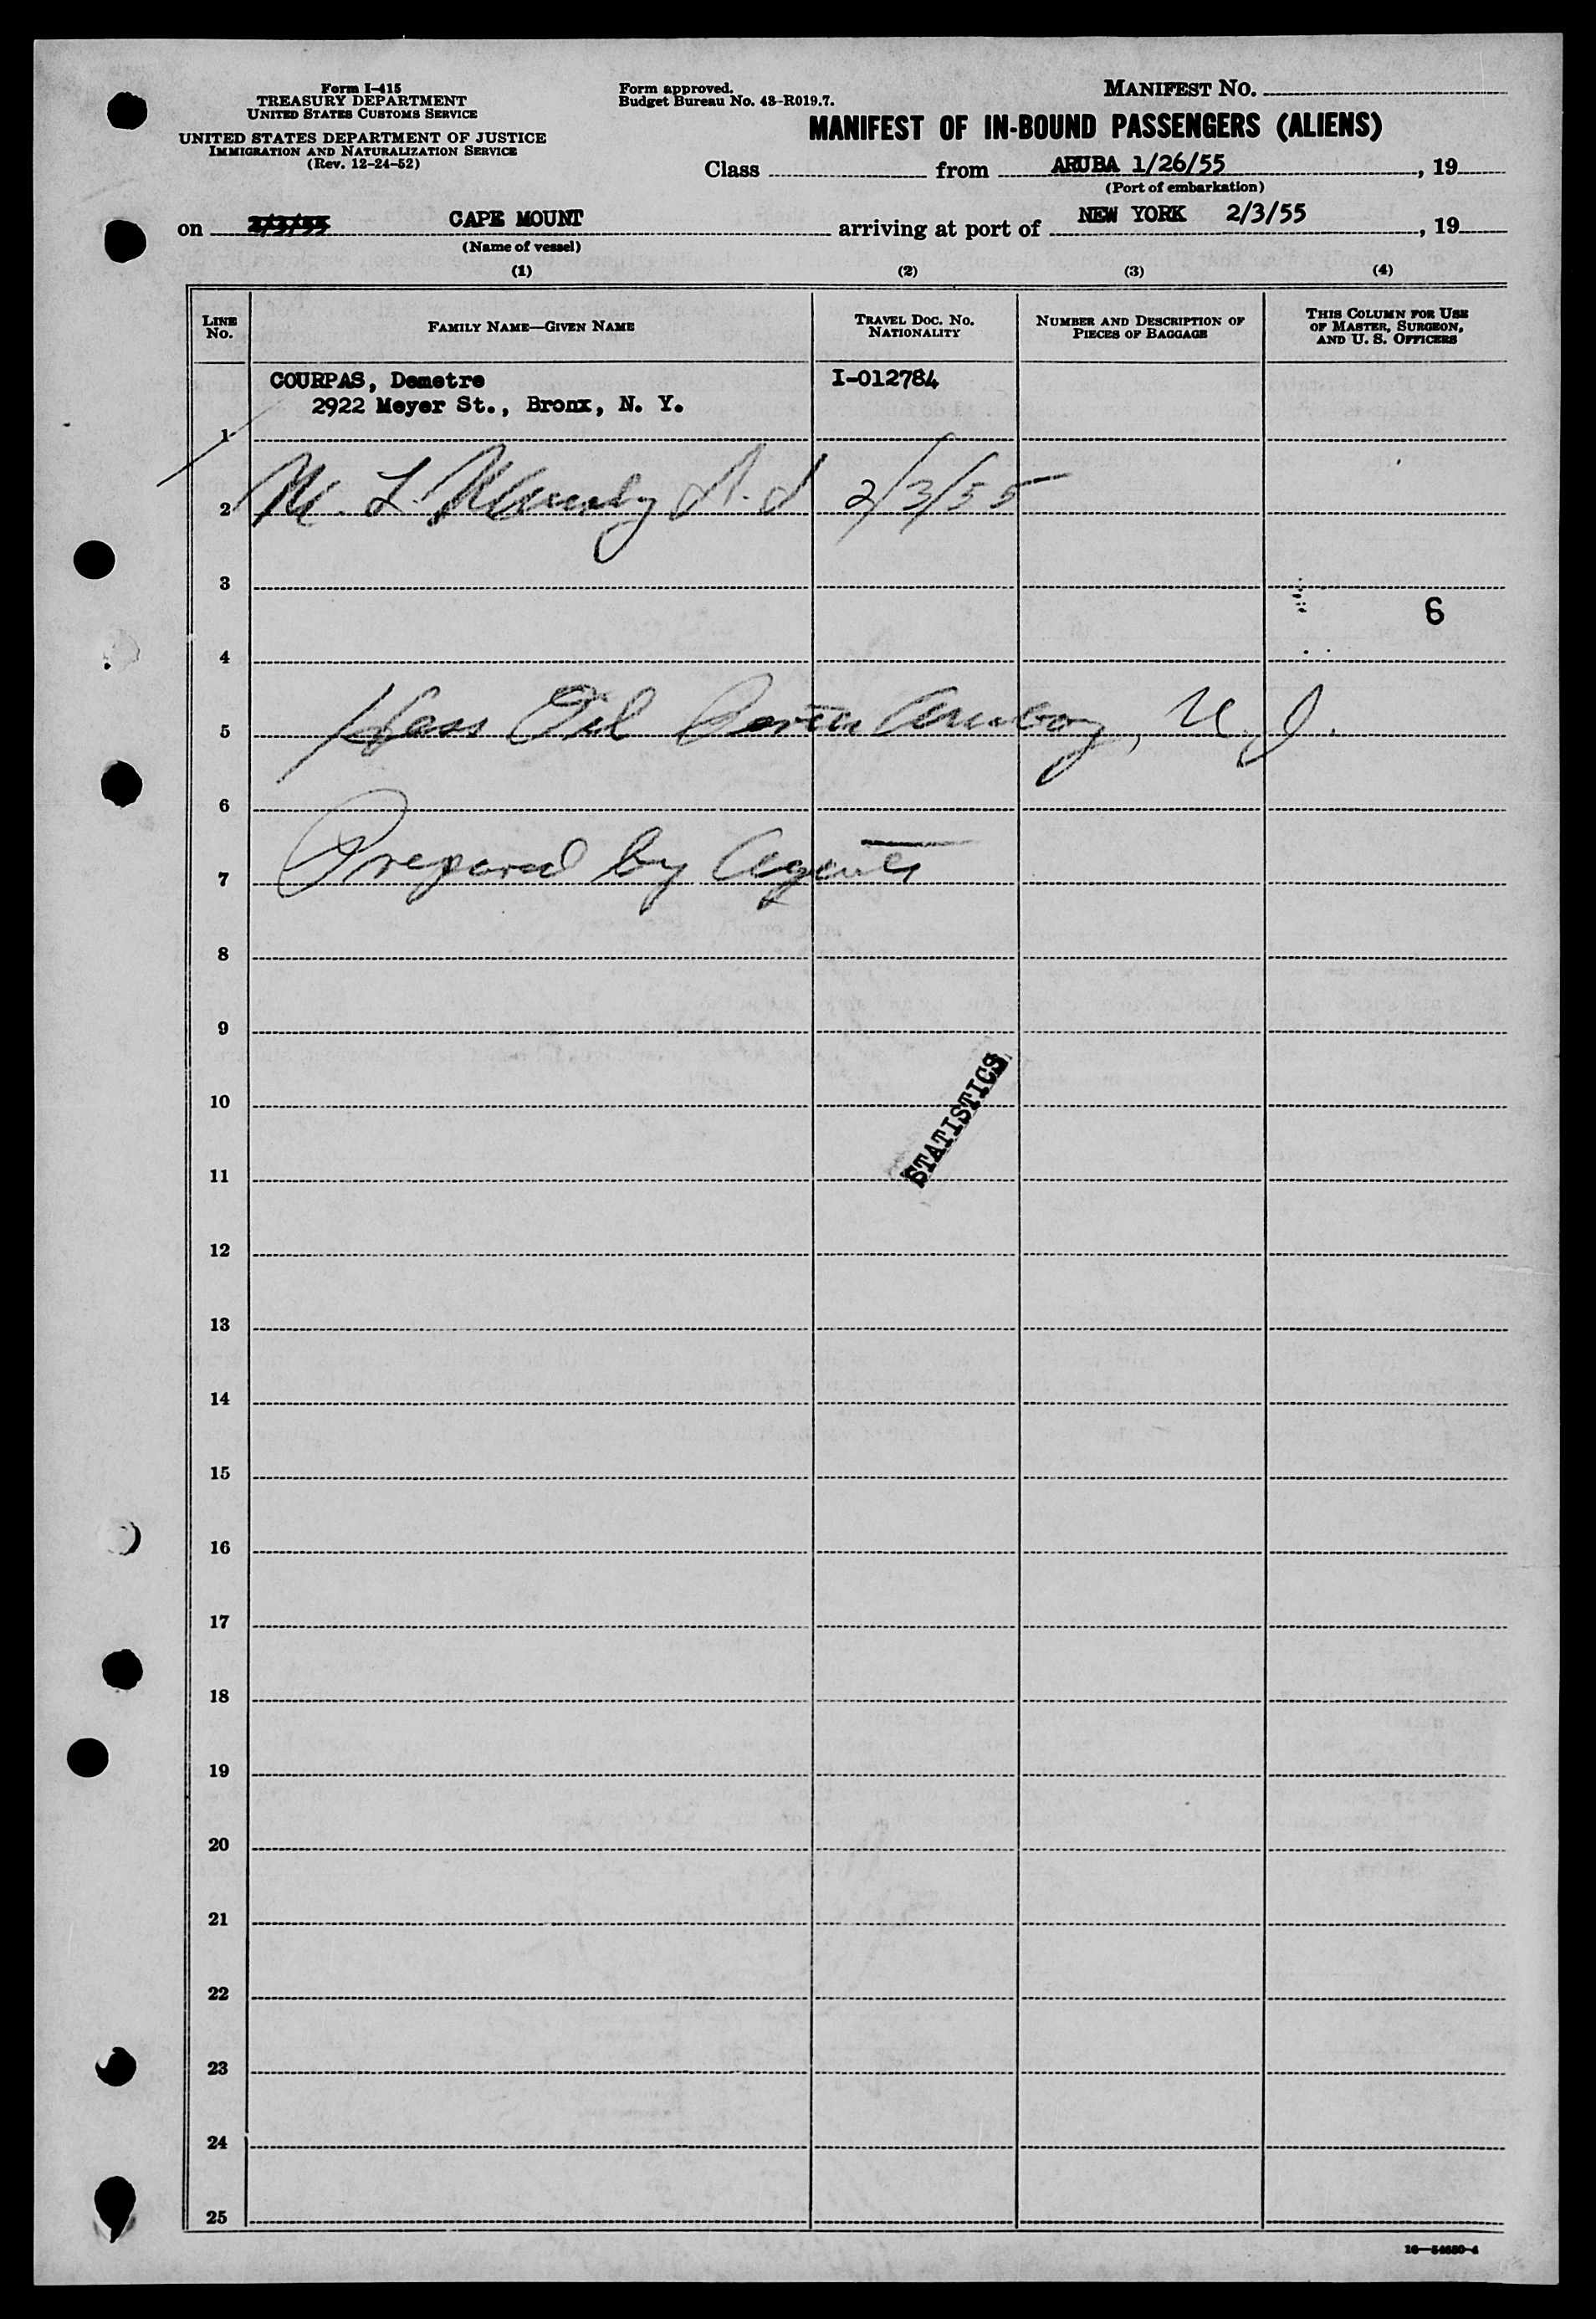 Form I-415
TREASURY DEPARTMENT
UNITED STATES CUSTOMS SERVICE
UNITED STATES DEPARTMENT OF JUSTICE
IMMIGRATION AND NATURALIZATION SERVICE
(Rev. 12-24-52)
Form approved.
Budget Bureau No. 43-R019.7.
MANIFEST NO.
MANIFEST OF IN-BOUND PASSENGERS (ALIENS)
Class from ARUBA 1/26/55, 19
(Port of embarkation)
on 2/3/55 CAPE MOUNT arriving at port of NEW YORK 2/3/55, 19
(Name of vessel)
(1) (2) (3) (4)
LINE No. FAMILY NAME—GIVEN NAME TRAVEL DOC. NO. NATIONALITY NUMBER AND DESCRIPTION OF PIECES OF BAGGAGE THIS COLUMN FOR USE OF MASTER, SURGEON, AND U. S. OFFICERS
COURPAS, Demetre I-012784
2922 Meyer St., Bronx, N. Y.
1
2 M. L. 2/3/55
3
6
4
5 Hess Oil Perth Amboy, N. J.
6
7 Prepared by Agents
8
9
10
STATISTICS
11
12
13
14
15
16
17
18
19
20
21
22
23
24
25